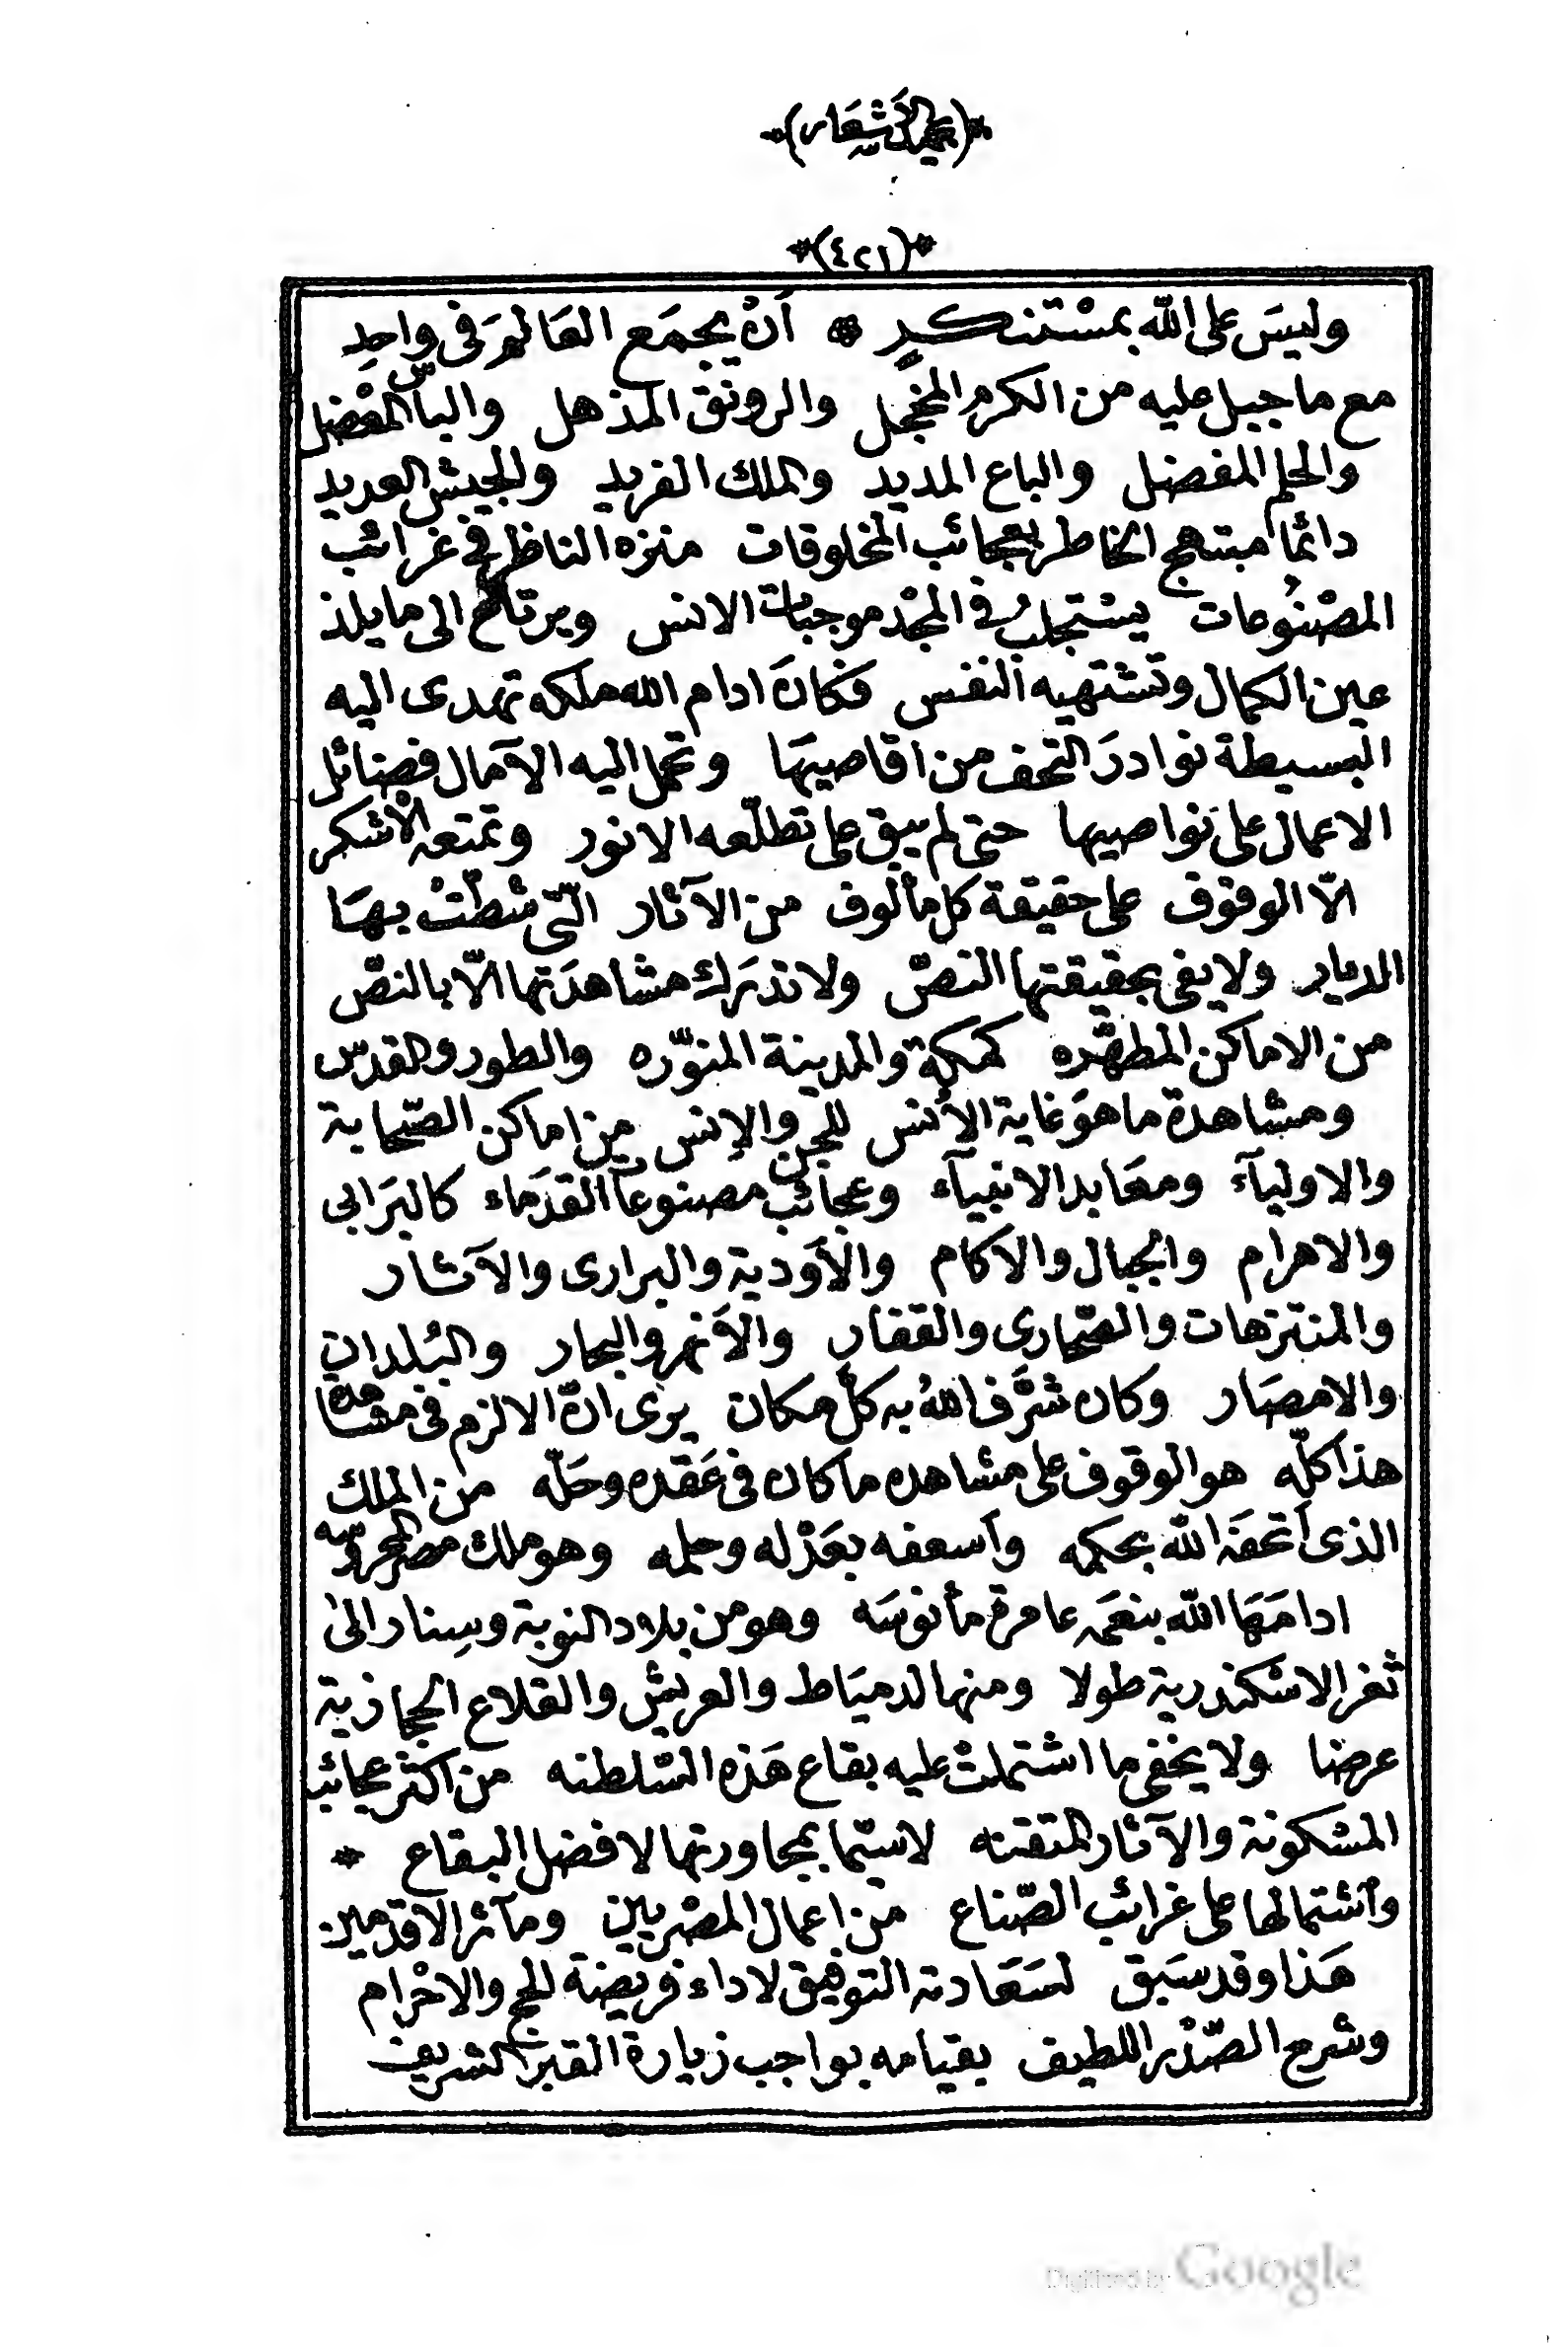 *(بحميل الأشعار)*
*(٤٢١)*
وليسَ على الله بمسْتنكرٍ * أن يجمَع العَالمَ في واحِدِ
مع ما جبل عليه من الكرم المخجل والرونق المذهل والباس المعْضل
والحلم المفضل والباع المديد والملك الفريد والجيش العديد
دائما مبتهج الخاطر بعجائب المخلوقات منزه الناظر في غرائب
المصْنُوعات يسْتجلبُ في المجْد موجبات الانس ويرتاح الى ما يلذ
عين الكمال وتشتهيه النفس فكانَ ادام الله ملكه تهدى اليه
البسيطة نوادرَ التحف من اقاصيهَا وتحمل اليه الآمال فضائل
الاعمال على نواصيها حتى لم يبق على تطلّعه الانور وتمتعه الأشكر
الّا الوقوف على حقيقة كل مألوف من الآثار التّى شطّتْ بهَا
الديار ولا يفى بحقيقتها النصّ ولا تدْرَك مشاهدَتها الّا بالنصّ
من الاماكن المطهّره كمكة والمدينة المنوّره والطور والقدس
ومشاهدة ما هوَ غاية الأنس للجن والإنس من اماكن الصّحابة
والاوليآء ومعَابد الانبيآء وعجائب مصنوعات القدَماء كالبرَابى
والاهرام والجبال والاكام والأوَدية والبرارى والآثار
والمنتزهات والصّحارى والقفار والأنهر والبحار والبُلدان
والامصَار وكان شرَّف اللهُ به كلّ مكان يرَى انّ الالزم في مشاهدة
هذا كلّه هو الوقوف على مشاهده ما كان في عَقده وحَلّه من الملك
الذى أتحفَه الله بحكمه وأسعفه بعَدْله وحلمه وهو ملك مصر المحروسه
ادامَهَا الله بنعَمه عامرة مأنوسَه وهو من بلاد النوبة وسِنار الىٰ
ثغر الاسكندرية طولا ومنها لدميَاط والعريش والقلاع الحجازية
عرضا ولا يخفى ما اشتملتْ عليه بقاع هَذه السّلطنه من اكثر عجائب
المشكونة والآثار المتقنه لاسيّما بمجاورتها لافضل البقاع *
وأشتمالها على غرائب الصّناع من اعمال المصْريين ومآثر الاقدمين
هَذا وقد سَبق لسَعَادته التوفيق لاداء فريضة الحج والاحْرام
وشرح الصّدْر اللطيف بقيامه بواجب زيارة القبر الشريف
Digitized by Google